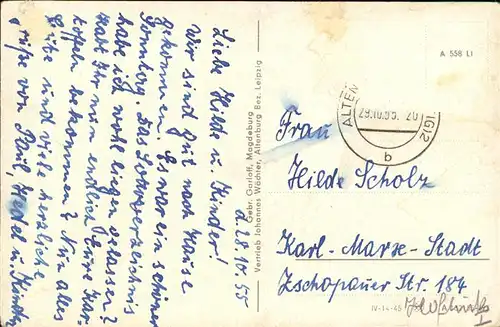 d. 28.10.55
Liebe Hilde u. Kinder!
Wir sind gut nach Hause
gekommen. Es war ein schöner
Sonntag. Das Lottoverzeichnis
habe ich wohl liegen gelassen?
Habt Ihr nun endlich Eure Kar-
toffeln bekommen? Nun alles
Gute und viele herzliche
Grüße von Paul, u. Kinder
Gebr. Garloff, Magdeburg
Vertrieb Johannes Wächter, Altenburg Bez. Leipzig
A 558 LI
ALTENB
29.10.55. 20
(G)2
b
Frau
Hilde Scholz
Karl-Marx-Stadt
Zschopauer Str. 184
IV-14-45